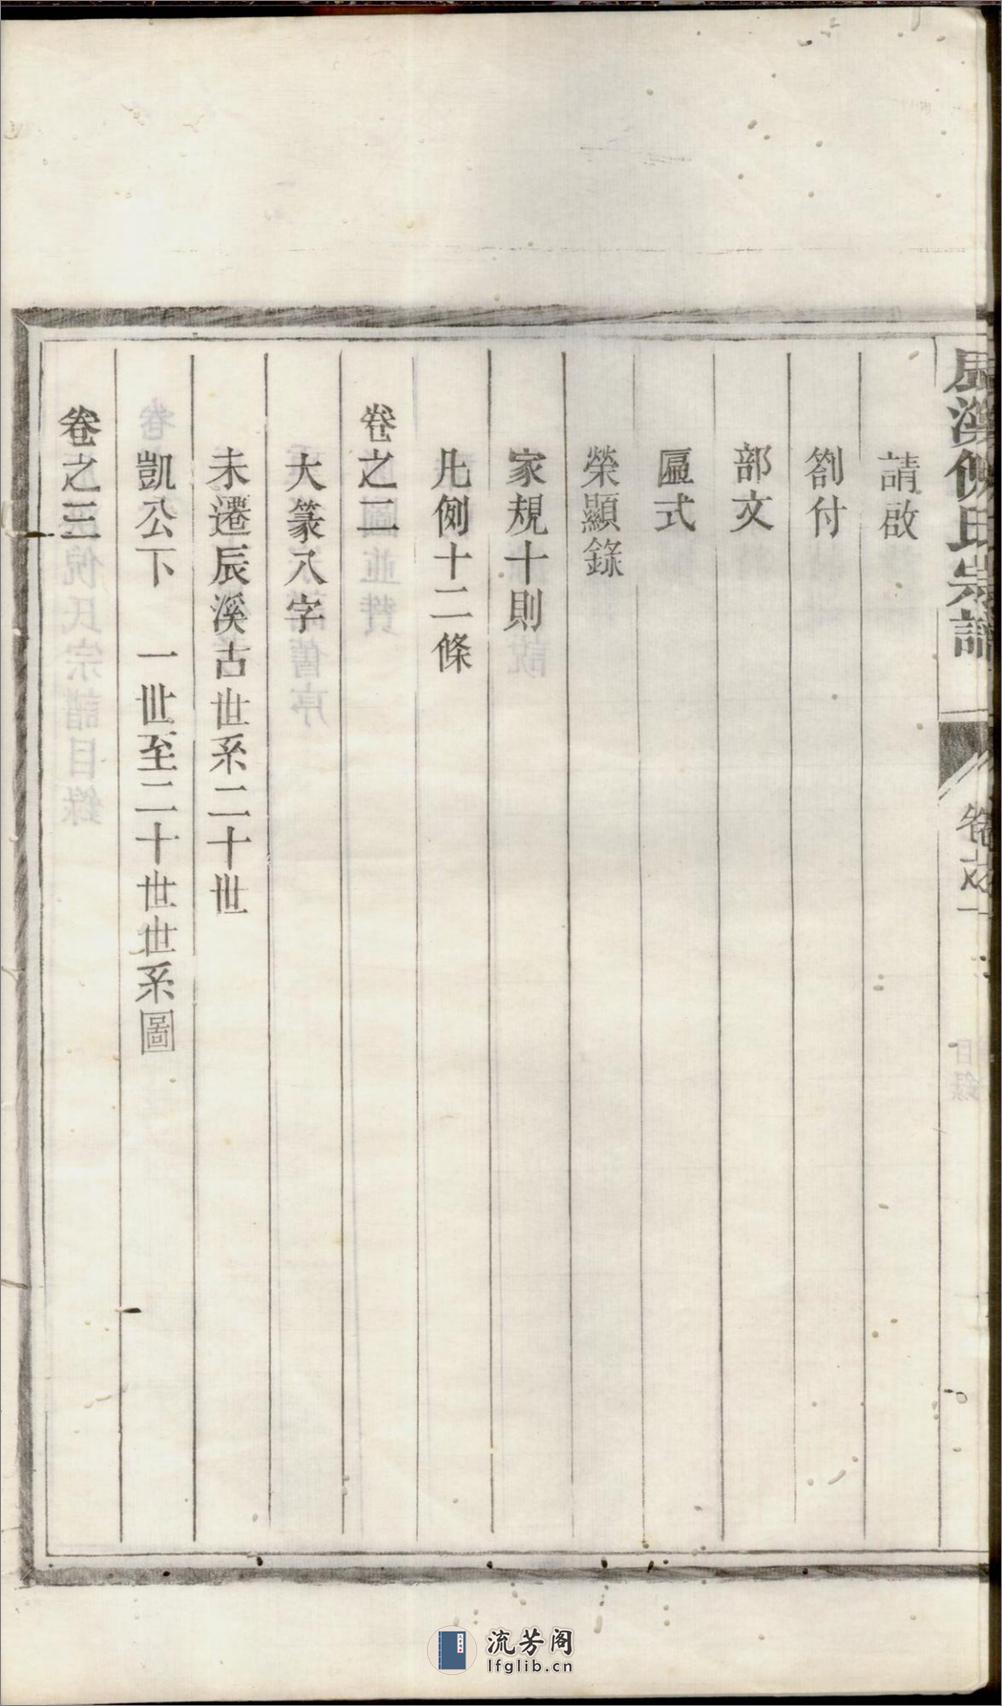 氏宗譜
請啟
劄付
部文
匾式
榮顯錄
家規十則
凡例十二條
卷之二
大篆八字
未遷辰溪古世系二十世
凱公下　一世至二十世世系圖
卷之三
流芳阁
lfglib.cn